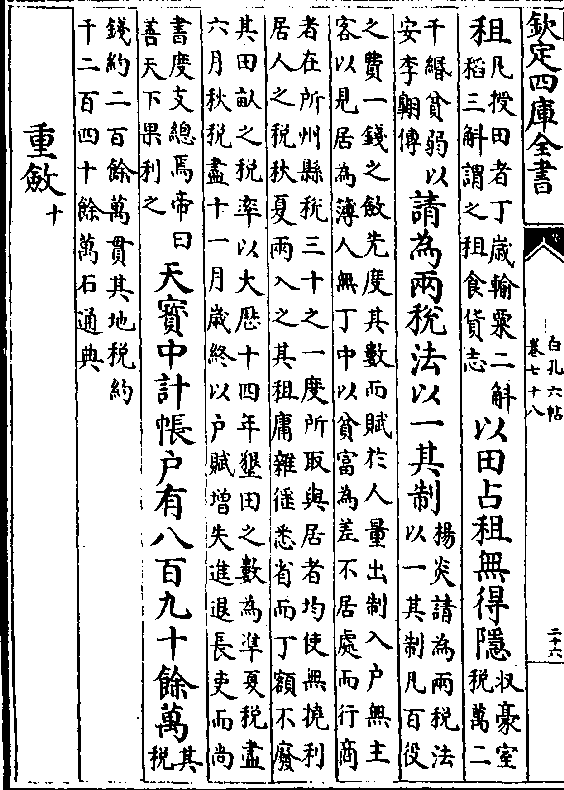 欽定四庫全書
白孔六帖
卷七十八
二十六
租
凡授田者丁歲輸粟二斛
稻三斛謂之租食貨志
以田占租無得隱
收豪室
税萬二
千緡貧弱以
安李翺傳
請為兩税法以一其制
楊炎請為兩税法
以一其制凡百役
之費一錢之斂先度其數而賦於人量出制入户無主
客以見居為簿人無丁中以貧富為差不居處而行商
者在所州縣税三十之一度所取與居者均使無撓利
居人之税秋夏兩入之其租庸雜徭悉省而丁額不廢
其田畝之税率以大厯十四年墾田之數為準夏税盡
六月秋税盡十一月歲終以户賦增失進退長吏而尚
書度支總焉帝曰
善天下果利之
天寳中計帳户有八百九十餘萬
其
税
錢約二百餘萬貫其地税約
千二百四十餘萬石通典
重斂
十